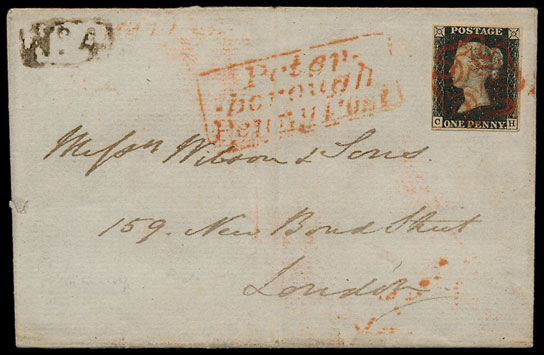 No. 4
Peter-
-borough
Penny Post
POSTAGE
C ONE PENNY H
Messrs Wilson & Sons.
159. New Bond Street
London